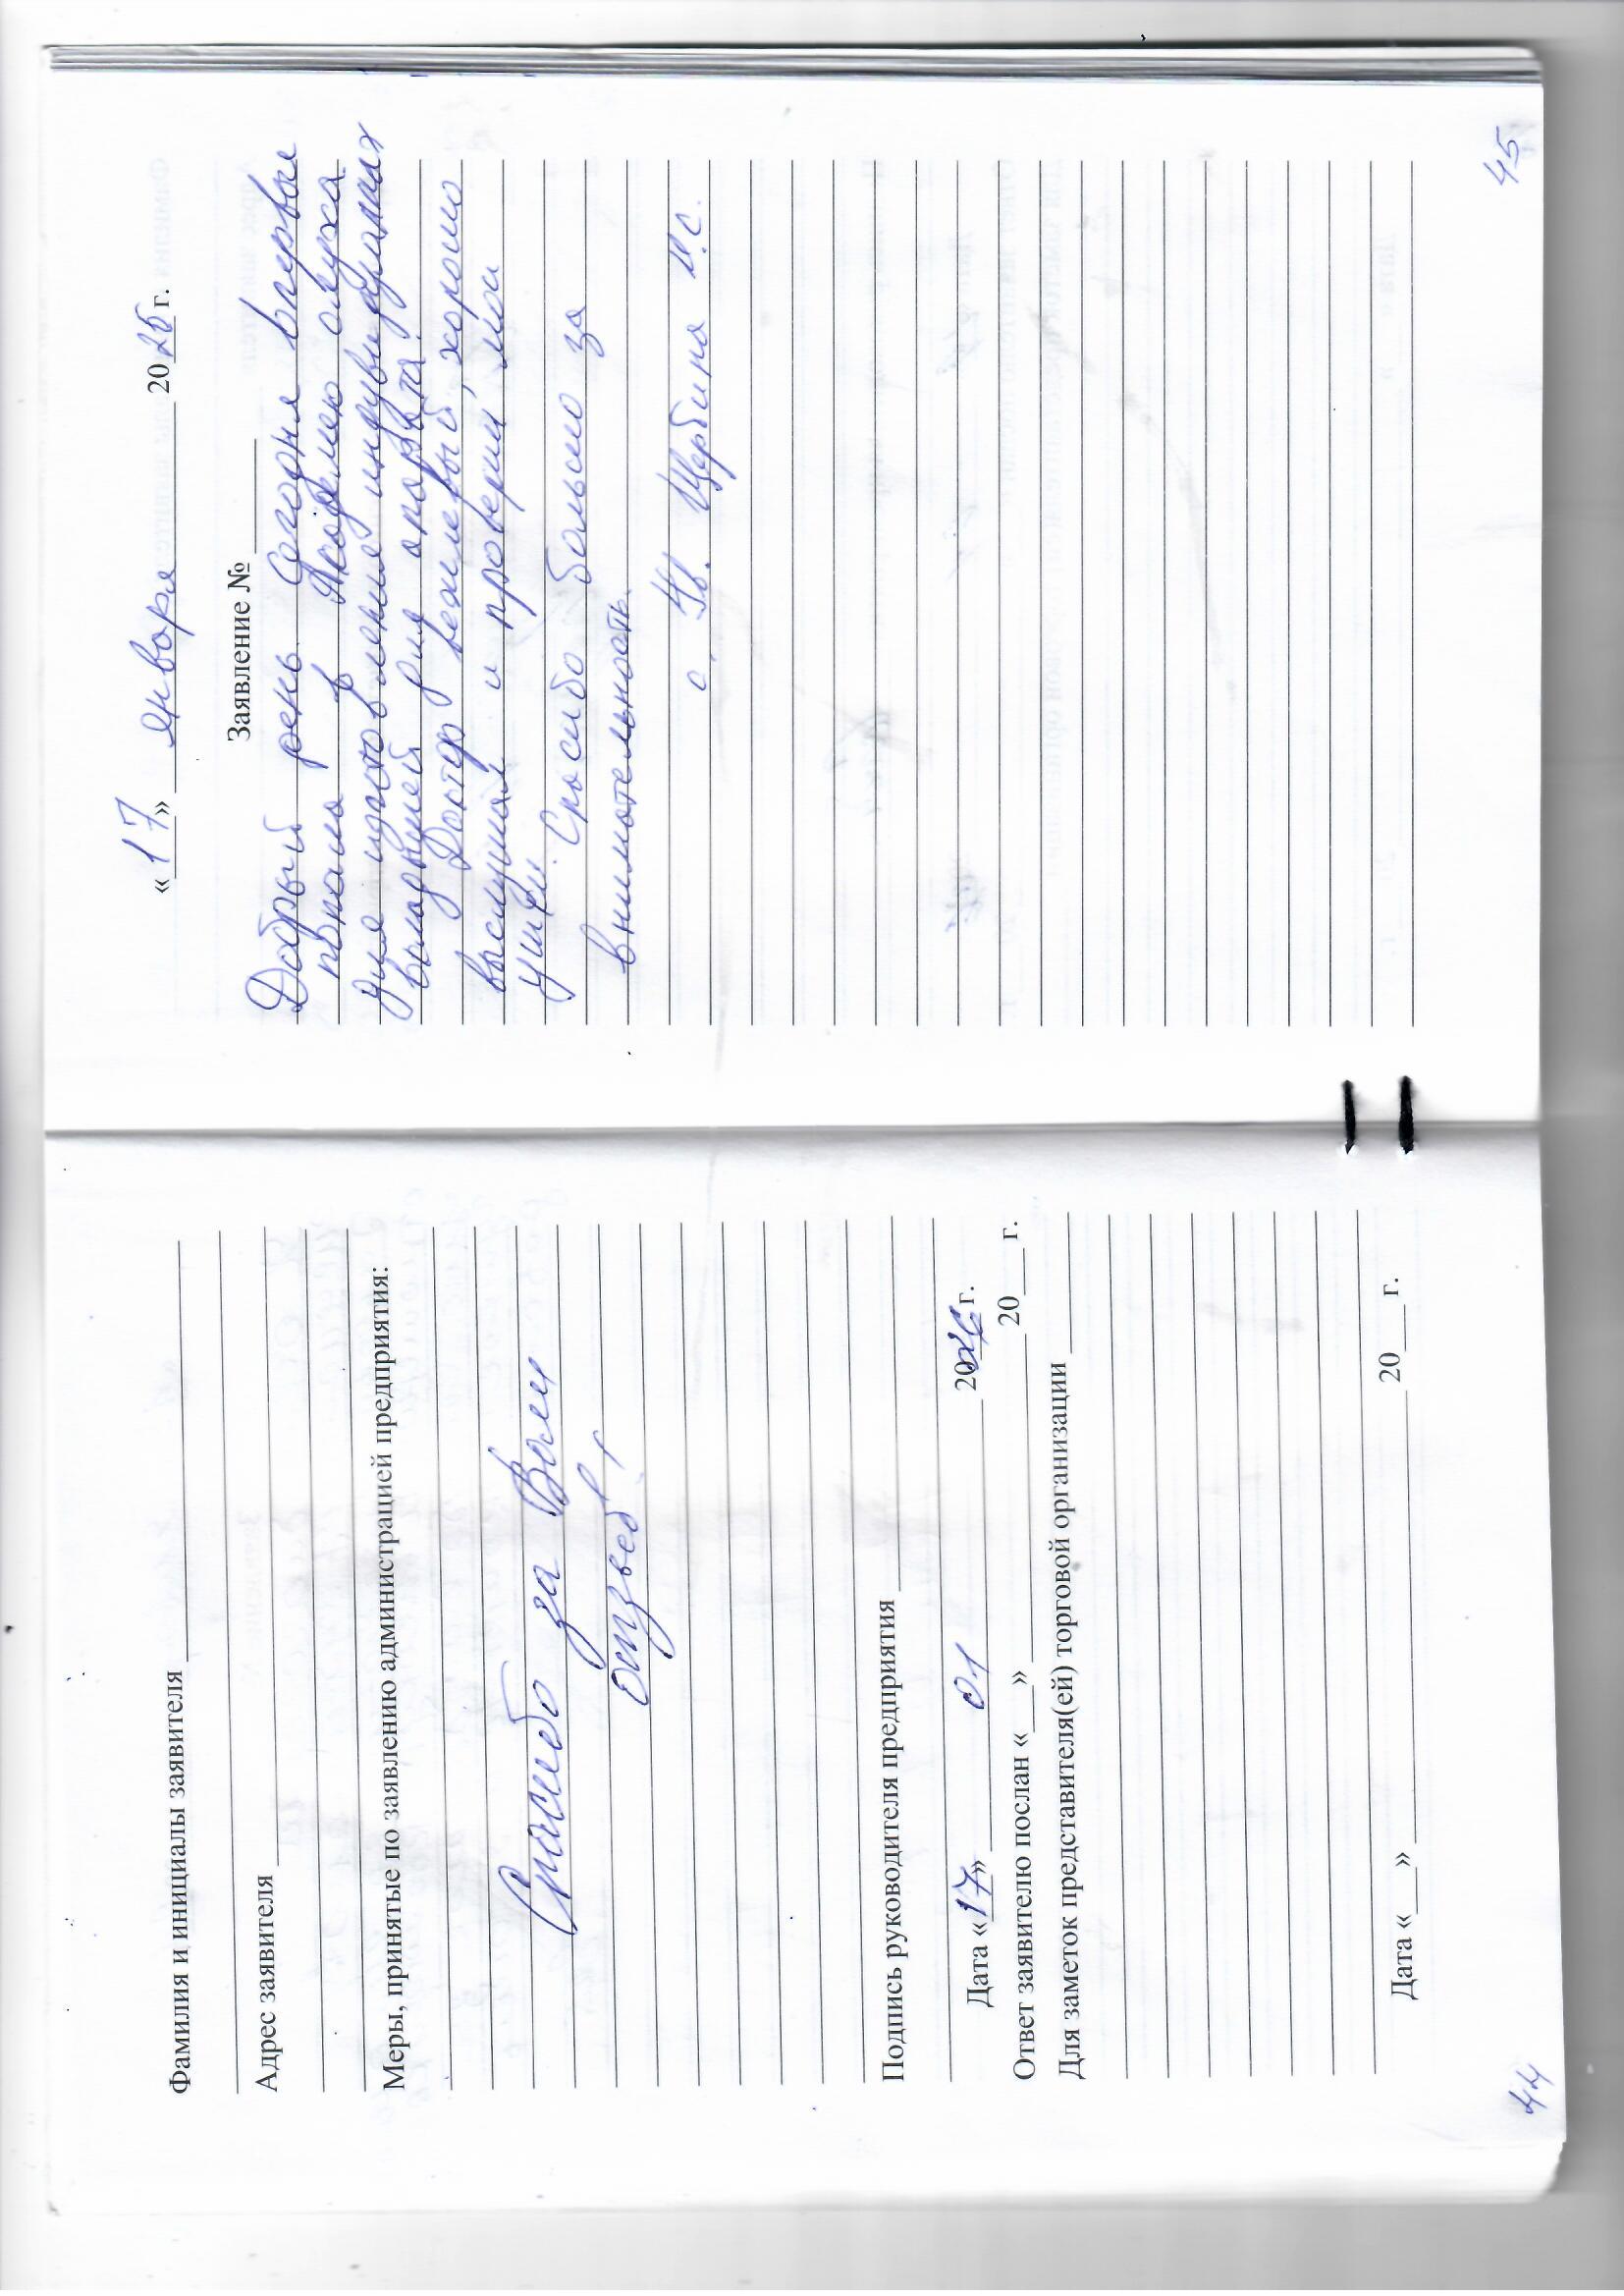 Фамилия и инициалы заявителя
Адрес заявителя
Меры, принятые по заявлению администрацией предприятия:
Спасибо за Ваш
отзыв!
Подпись руководителя предприятия
Дата «17» 01 2026 г.
Ответ заявителю послан «___» 20___ г.
Для заметок представителя(ей) торговой организации
Дата «___» 20___ г.
44
«17» января 2026 г.
Заявление №
Добрый день. Сегодня впервые
попала в Академию слуха
для изготовления индивидуальных
вкладышей для аппарата.
Доктор вежливый, хорошо
выслушал и проверил мои
ушки. Спасибо большое за
внимательность.
с Ув. Щербина
45